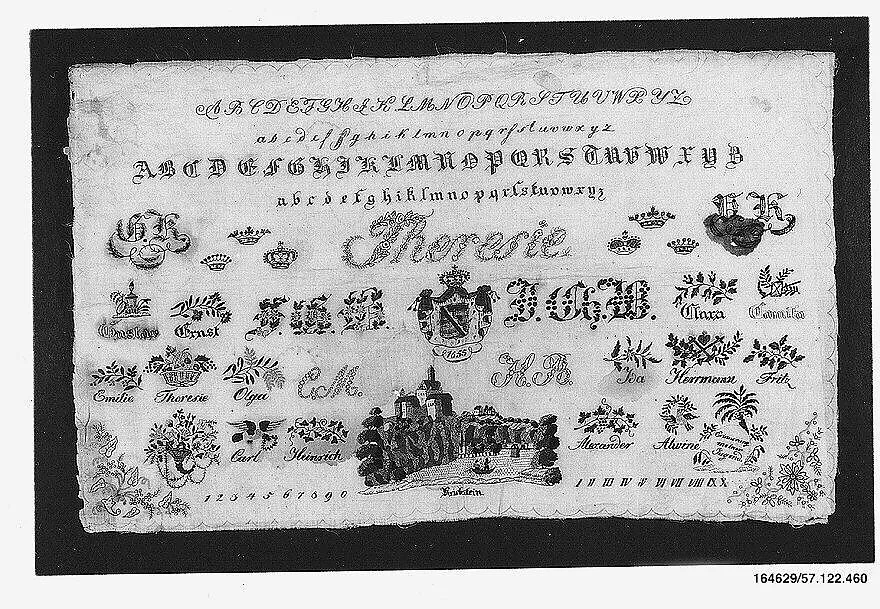 A B C D E F G H I K L M N O P Q R S T U V W X Y Z
a b c d e f g h i k l m n o p q r s t u v w x y z
A B C D E F G H I K L M N O P Q R S T U V W X Y Z
a b c d e f g h i k l m n o p q r ſ s t u v w x y z
G. K.
Theresie.
E K
Gustav Ernst
J. G. B.
Clara
1655
Emilie Theresie Olga
C. M.
H. B.
Ida Herrmann Fritz
Carl Heinrich
Alexander Alwine
meiner
Jugend
1 2 3 4 5 6 7 8 9 0
I II III IV V VI VII VIII IX X
164629/57.122.460